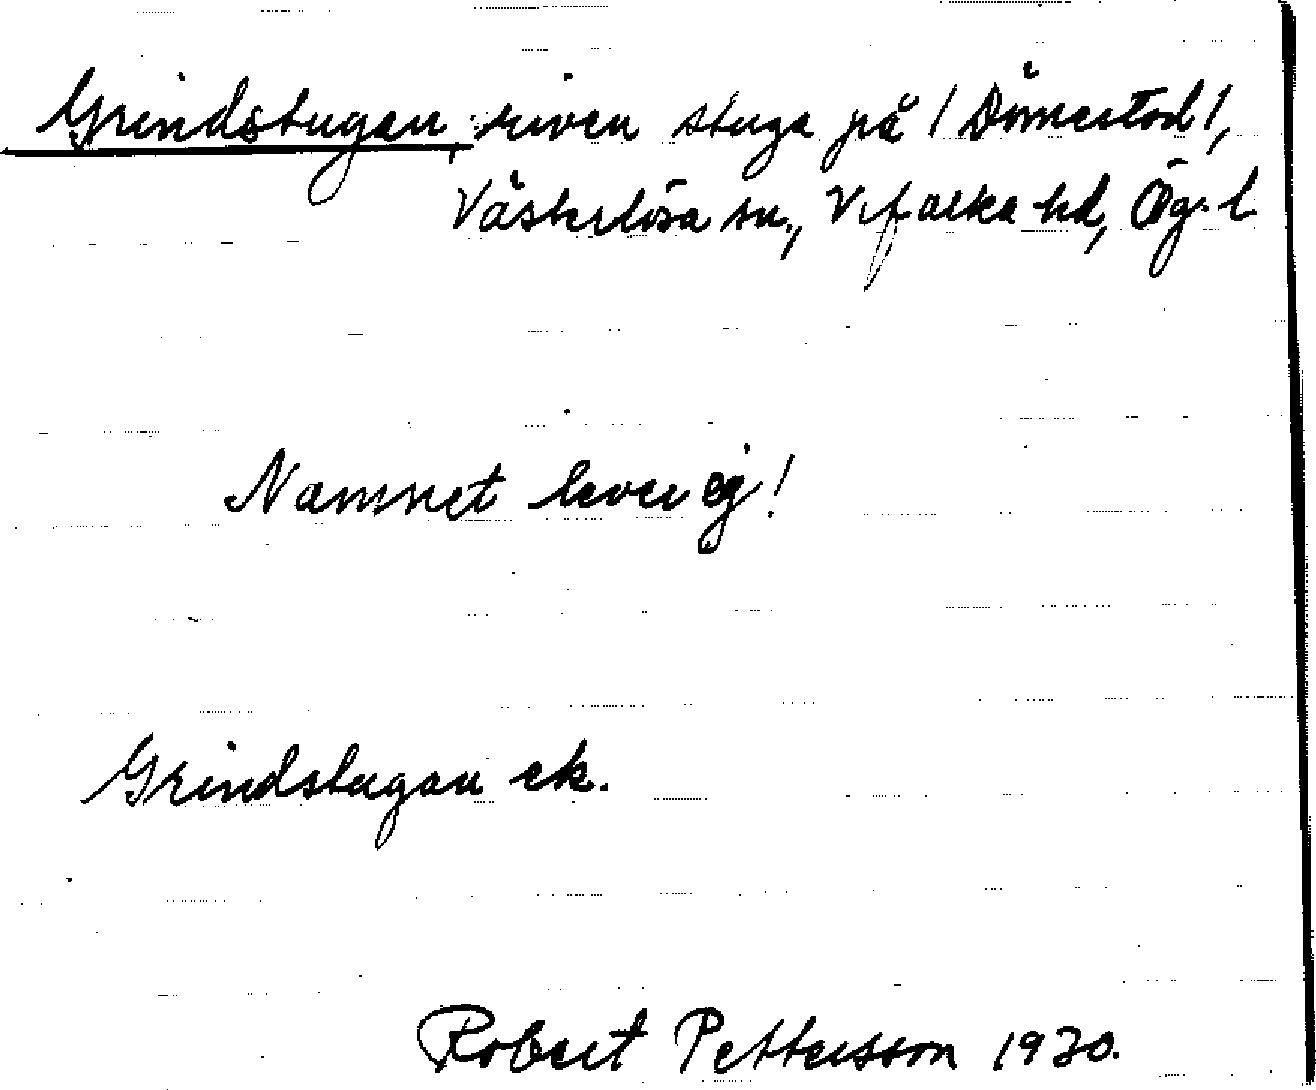 Grindstugan, riven stuga på /Dömestad/,
Västerlösa sn., Vifolka hd, Ög. l.
Namnet lever ej!
Grindstugan ek.
Robert Pettersson 1930.